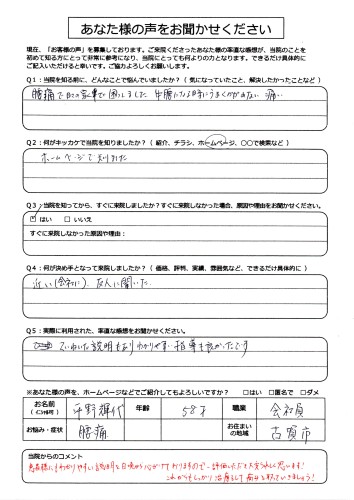 あなた様の声をお聞かせください
現在、「お客様の声」を募集しております。ご来院くださったあなた様の率直な感想が、当院のことを
初めて知る方にとって非常に参考になり、当院にとっても何よりの力となります。できるだけ具体的に
ご記入いただけると幸いです。ご協力よろしくお願いします。
Q1：当院を知る前に、どんなことで悩んでいましたか？（ 気になっていたこと、解決したかったことなど ）
腰痛で日々の家事で困りました 中腰になる時にうまく力が入らない 痛い
Q2：何がキッカケで当院を知りましたか？（ 紹介、チラシ、ホームページ、〇〇で検索など ）
ホームページで知りました
Q3：当院を知ってから、すぐに来院しましたか？すぐ来院しなかった場合、原因や理由をお聞かせください。
□はい　□いいえ
すぐに来院しなかった原因や理由：
Q4：何が決め手となって来院しましたか？（ 価格、評判、実績、雰囲気など、できるだけ具体的に ）
近い(会社に) 友人に聞いた
Q5：実際に利用された、率直な感想をお聞かせください。
ていねいな説明もありわかりやすい 指導も良かったです
※あなた様の声を、ホームページなどでご紹介してもよろしいですか？　□はい　□匿名で　□ダメ
お名前 平野 輝代 年齢 58才 職業 会社員
(イニシャル可)
お悩み・症状 腰痛 お住まいの地域 古賀市
当院からのコメント
患者様にもわかりやすい説明を日頃から心がけておりますので、評価いただき大変うれしく思います!
これからもしっかり治療をして痛みを取っていきましょう!